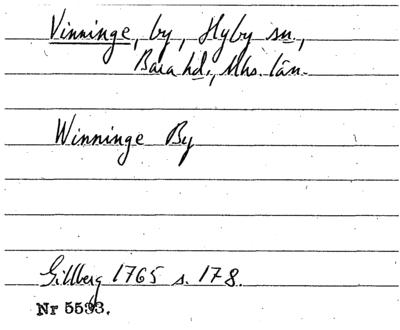 Vinninge, by, Hyby sn.,
Bara hd., Mhs. län.
Winninge By
Gillberg 1765 s. 178.
Nr 5593.